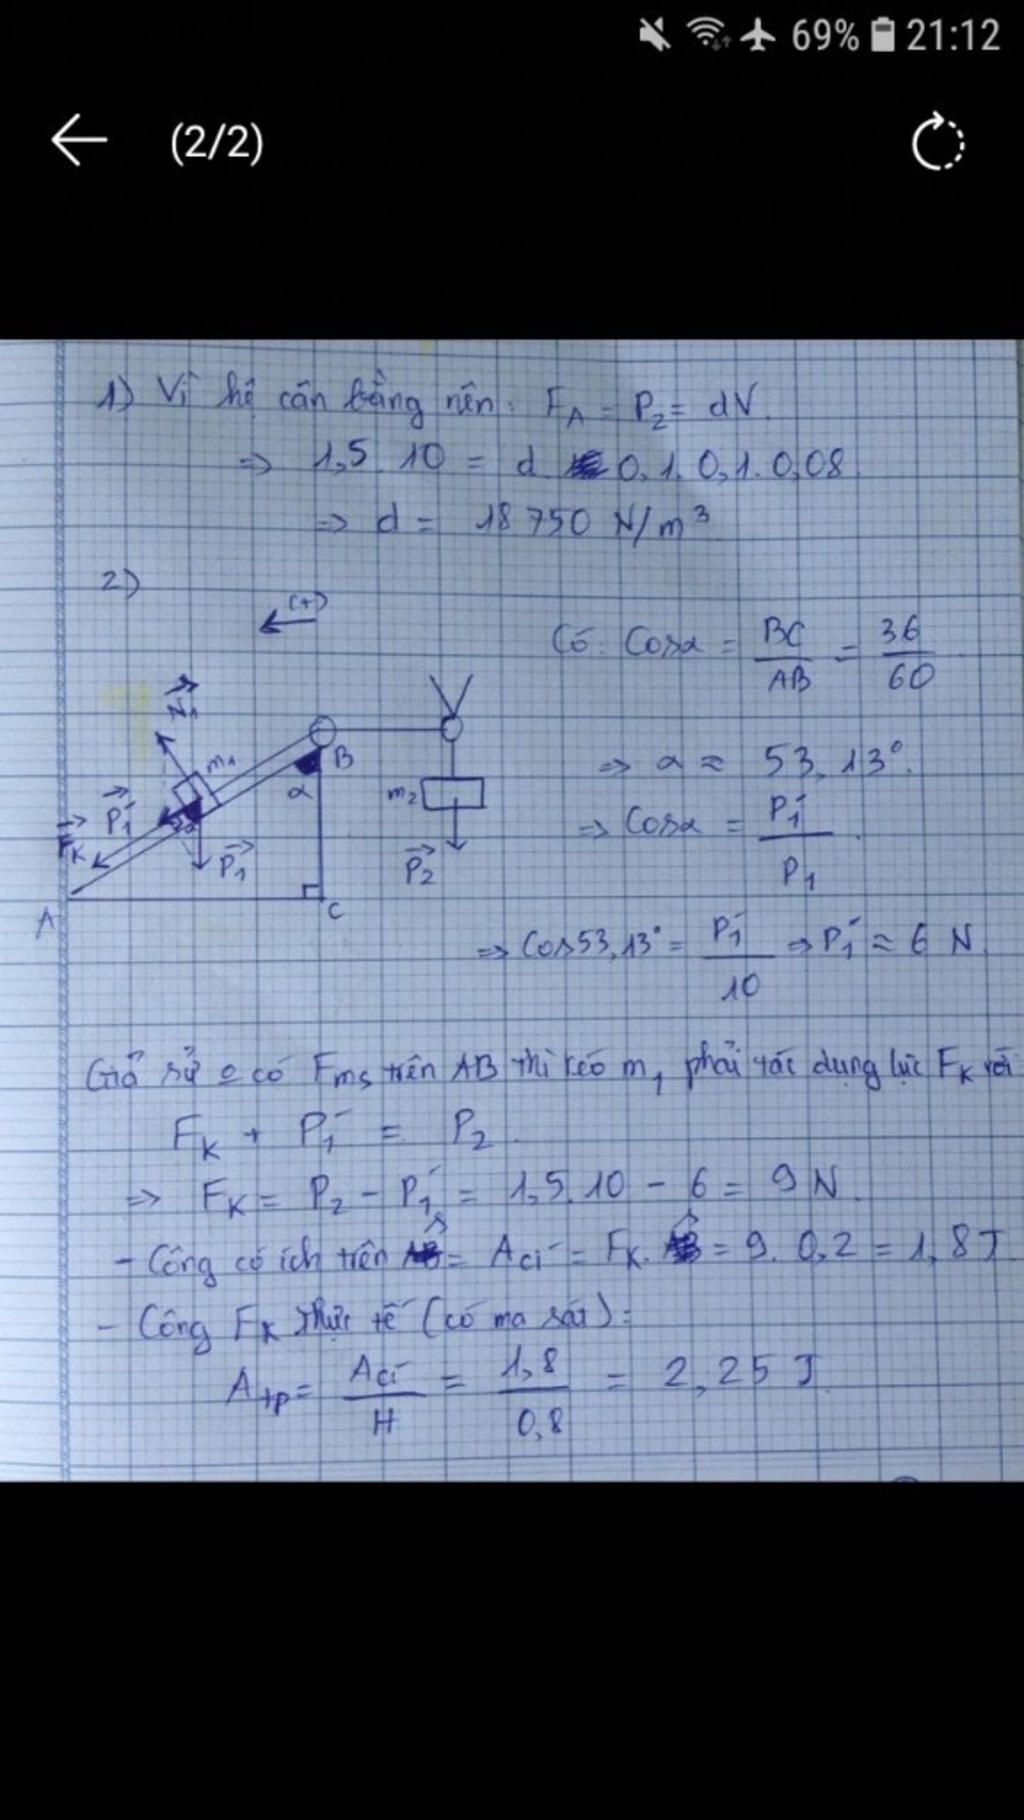 69% 21:12
(2/2)
1) Vì hệ cân bằng nên: F_A = P_2 = dV.
=> 1,5.10 = d. 0,1.0,1.0,08
=> d = 18750 N/m³
2)
(+)
Có: Cosα = BC/AB = 36/60
=> α ≈ 53,13°.
=> Cosα = P_1'/P_1.
=> Cos53,13° = P_1'/10 => P_1' ≈ 6 N.
N_1
m_1
B
α
m_2
P_1'
F_K
P_1
P_2
A
C
Giả sử o có F_ms trên AB thì kéo m_1 phải tác dụng lực F_K với
F_K + P_1' = P_2.
=> F_K = P_2 - P_1' = 1,5.10 - 6 = 9 N.
- Công có ích trên s = A_ci = F_K.s = 9.0,2 = 1,8 J
- Công F_K thực tế (có ma sát):
A_tp = A_ci/H = 1,8/0,8 = 2,25 J